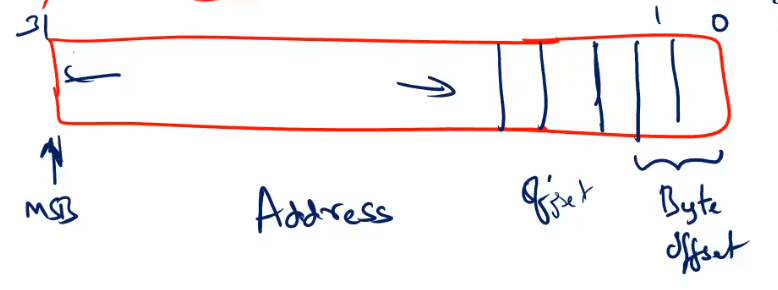 31 1 0
MSB Address offset Byte
offset